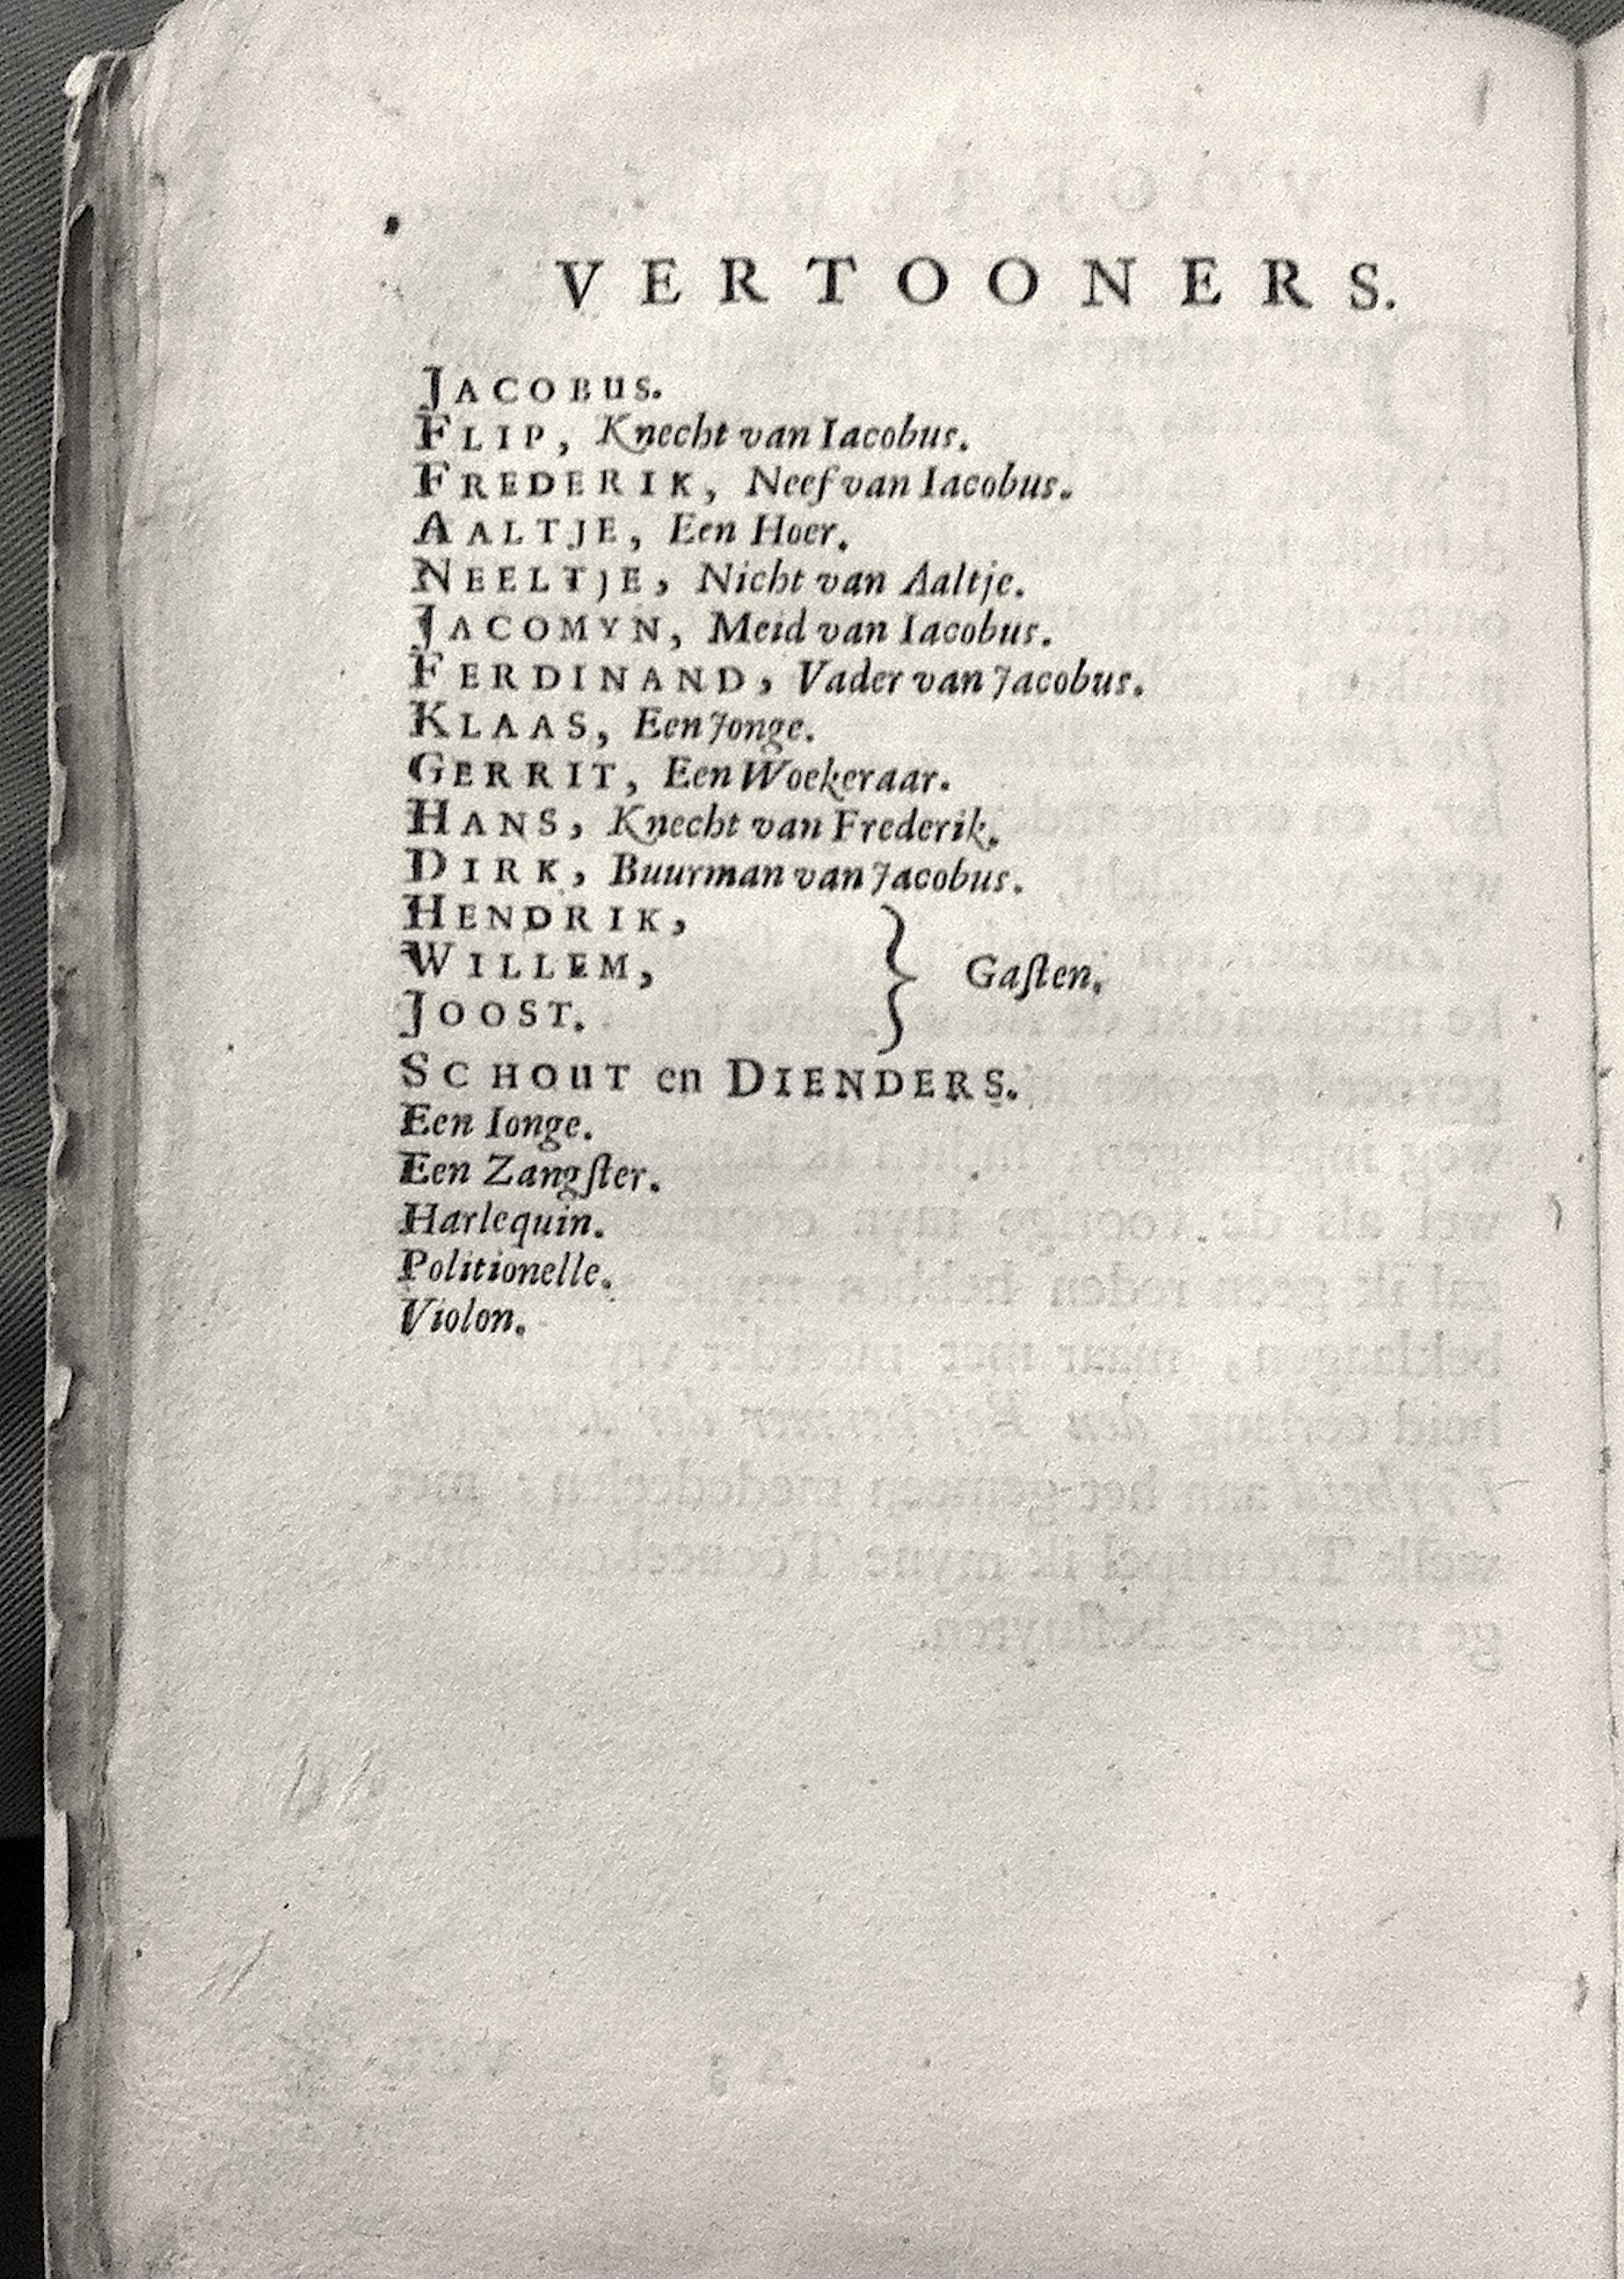 VERTOONERS.
JACOBUS.
FLIP, Knecht van Iacobus.
FREDERIK, Neef van Iacobus.
AALTJE, Een Hoer.
NEELTJE, Nicht van Aaltje.
JACOMYN, Meid van Iacobus.
FERDINAND, Vader van Jacobus.
KLAAS, Een Jonge.
GERRIT, Een Woekeraar.
HANS, Knecht van Frederik.
DIRK, Buurman van Jacobus.
HENDRIK,
WILLEM,
JOOST.
} Gaſten.
SCHOUT en DIENDERS.
Een Ionge.
Een Zangſter.
Harlequin.
Politionelle.
Violon.